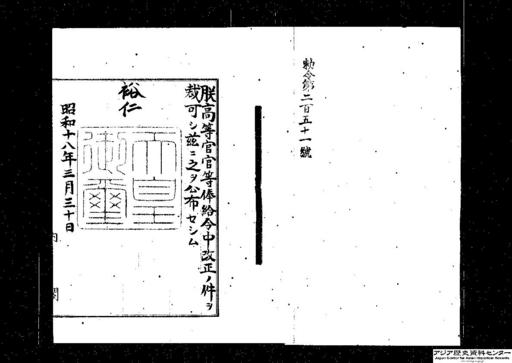 勅令第二百五十一號
朕高等官官等俸給令中改正ノ件ヲ
裁可シ茲ニ之ヲ公布セシム
裕仁
天皇
御璽
昭和十八年三月三十日
内閣
アジア歴史資料センター
Japan Center for Asian Historical Records